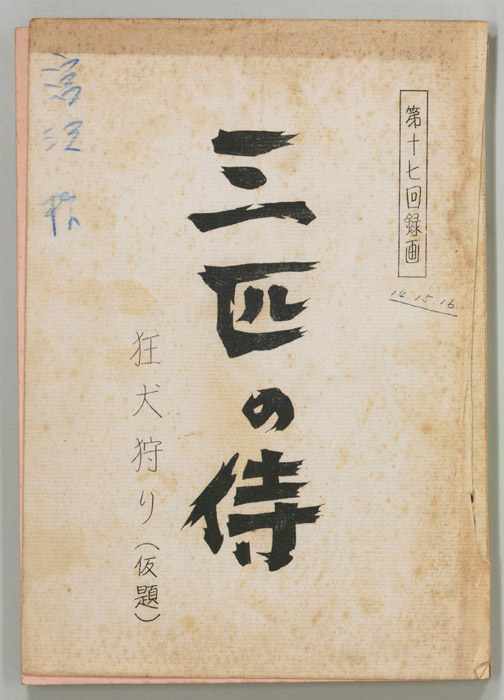 第十七回録画
14.15.16.
三匹の侍
狂犬狩り（仮題）